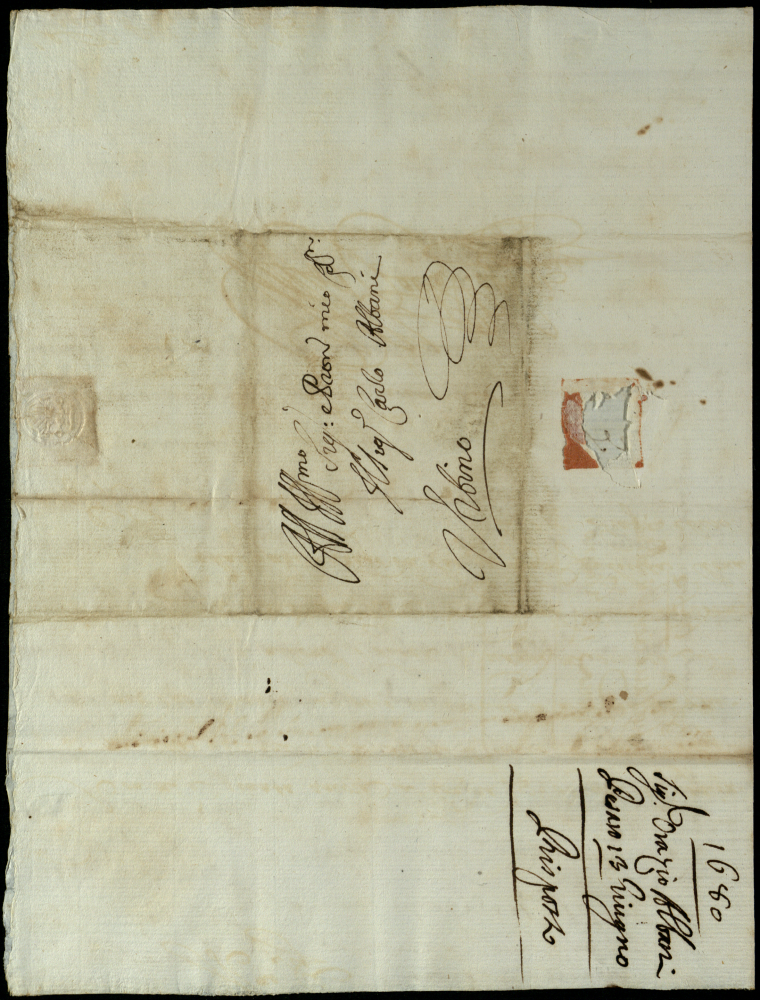 All' Ill.mo Sig.r e Pron mio
Il Sig.r Carlo Albani
Urbino
1680
Sig.r Orazio Albani
Pesaro 13 Giugno
Risposto